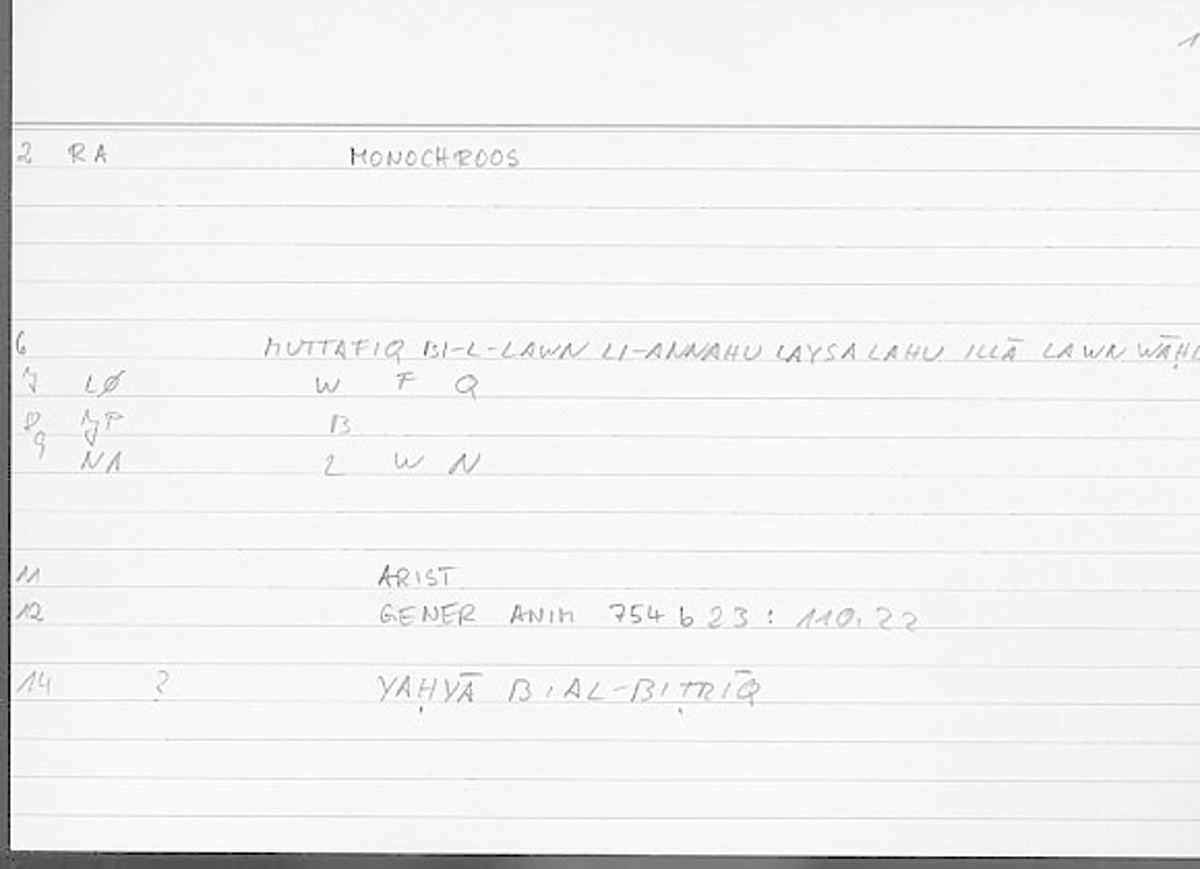 1
2 RA MONOCHROOS
6 MUTTAFIQ BI-L-LAWN LI-ANNAHU LAYSA LAHU ILLĀ LAWN
7 LØ W F Q
8 JP B
9 NA L W N
11 ARIST
12 GENER ANIM 754 b 23 : 110.22
14 ? YAḤYĀ B I AL-BIṬRĪQ